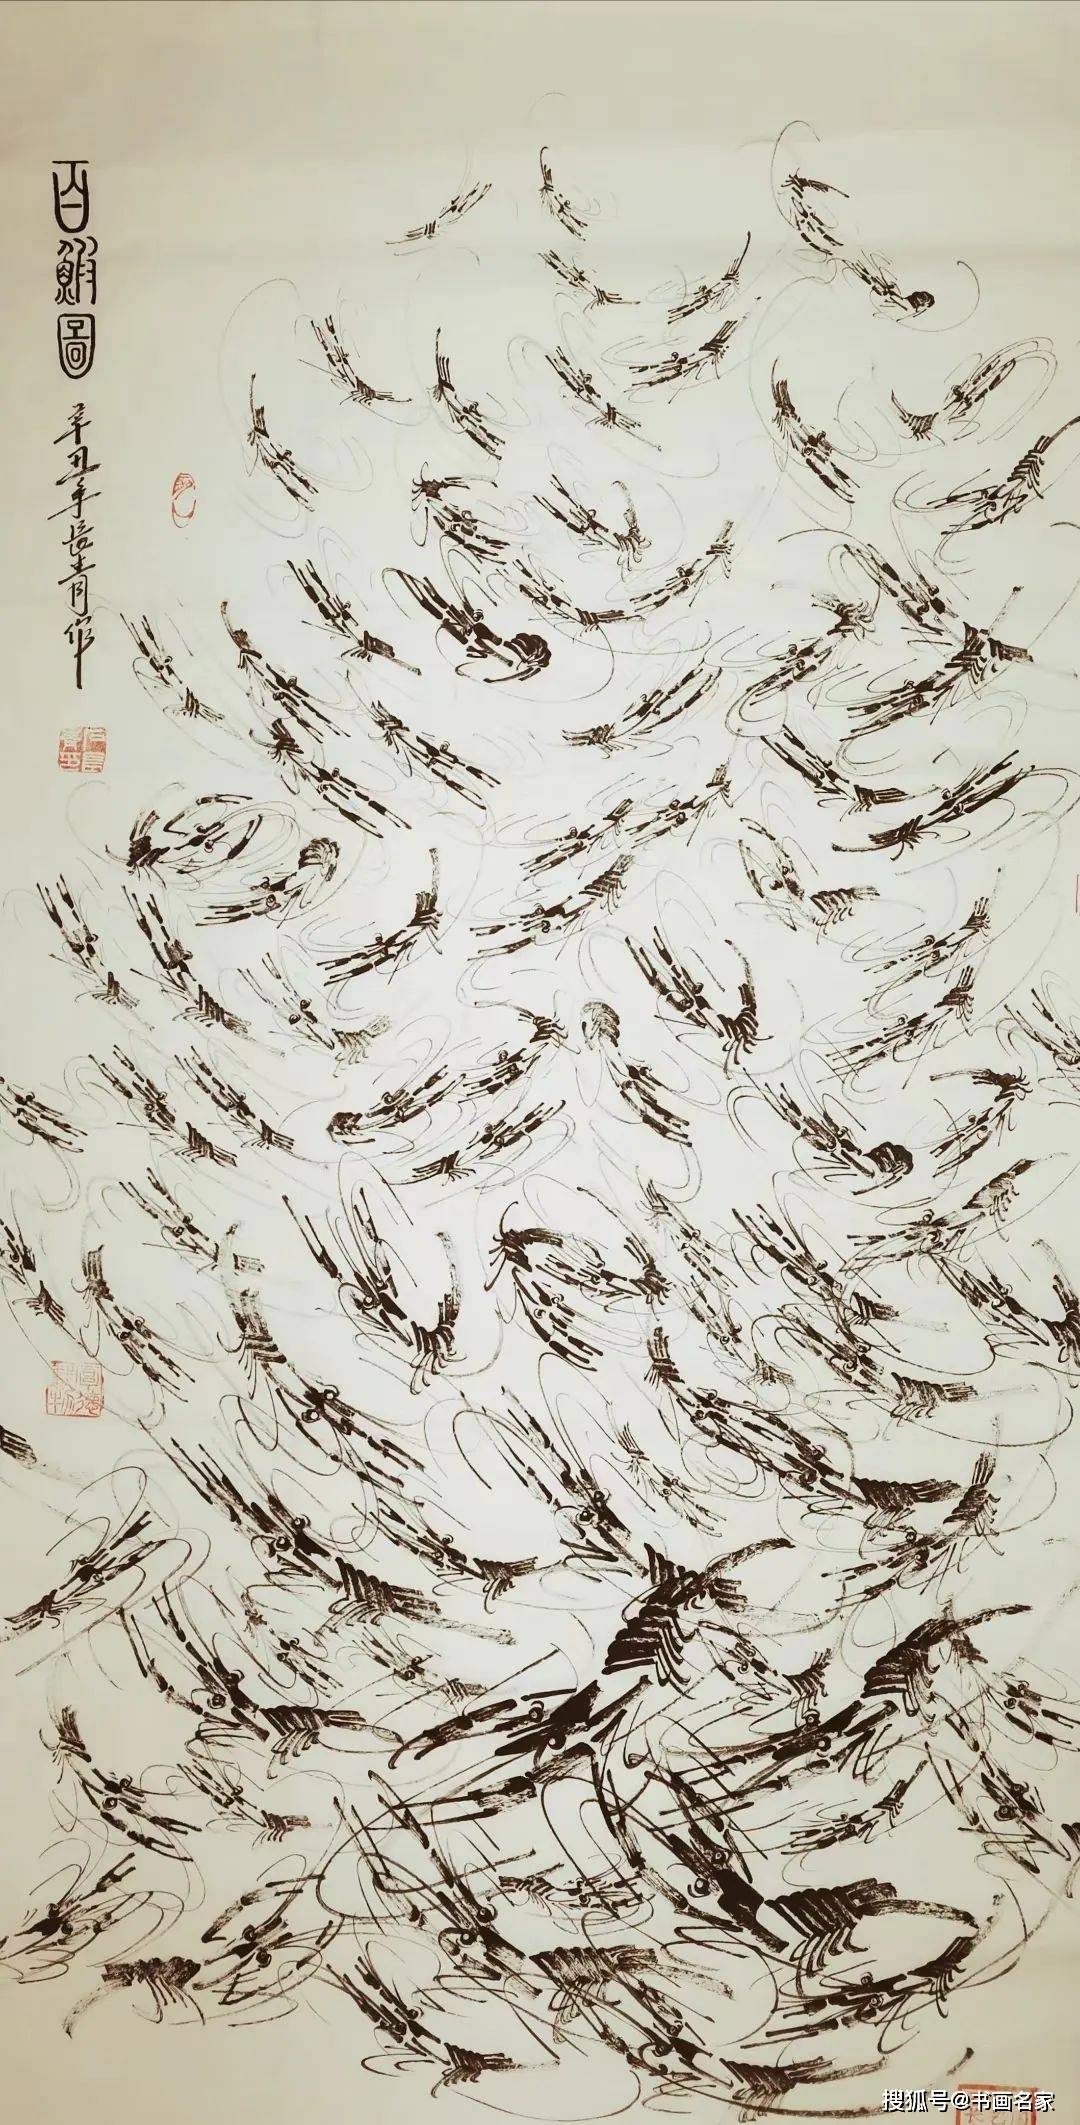 百鰕圖
辛丑年長青作
搜狐号@书画名家